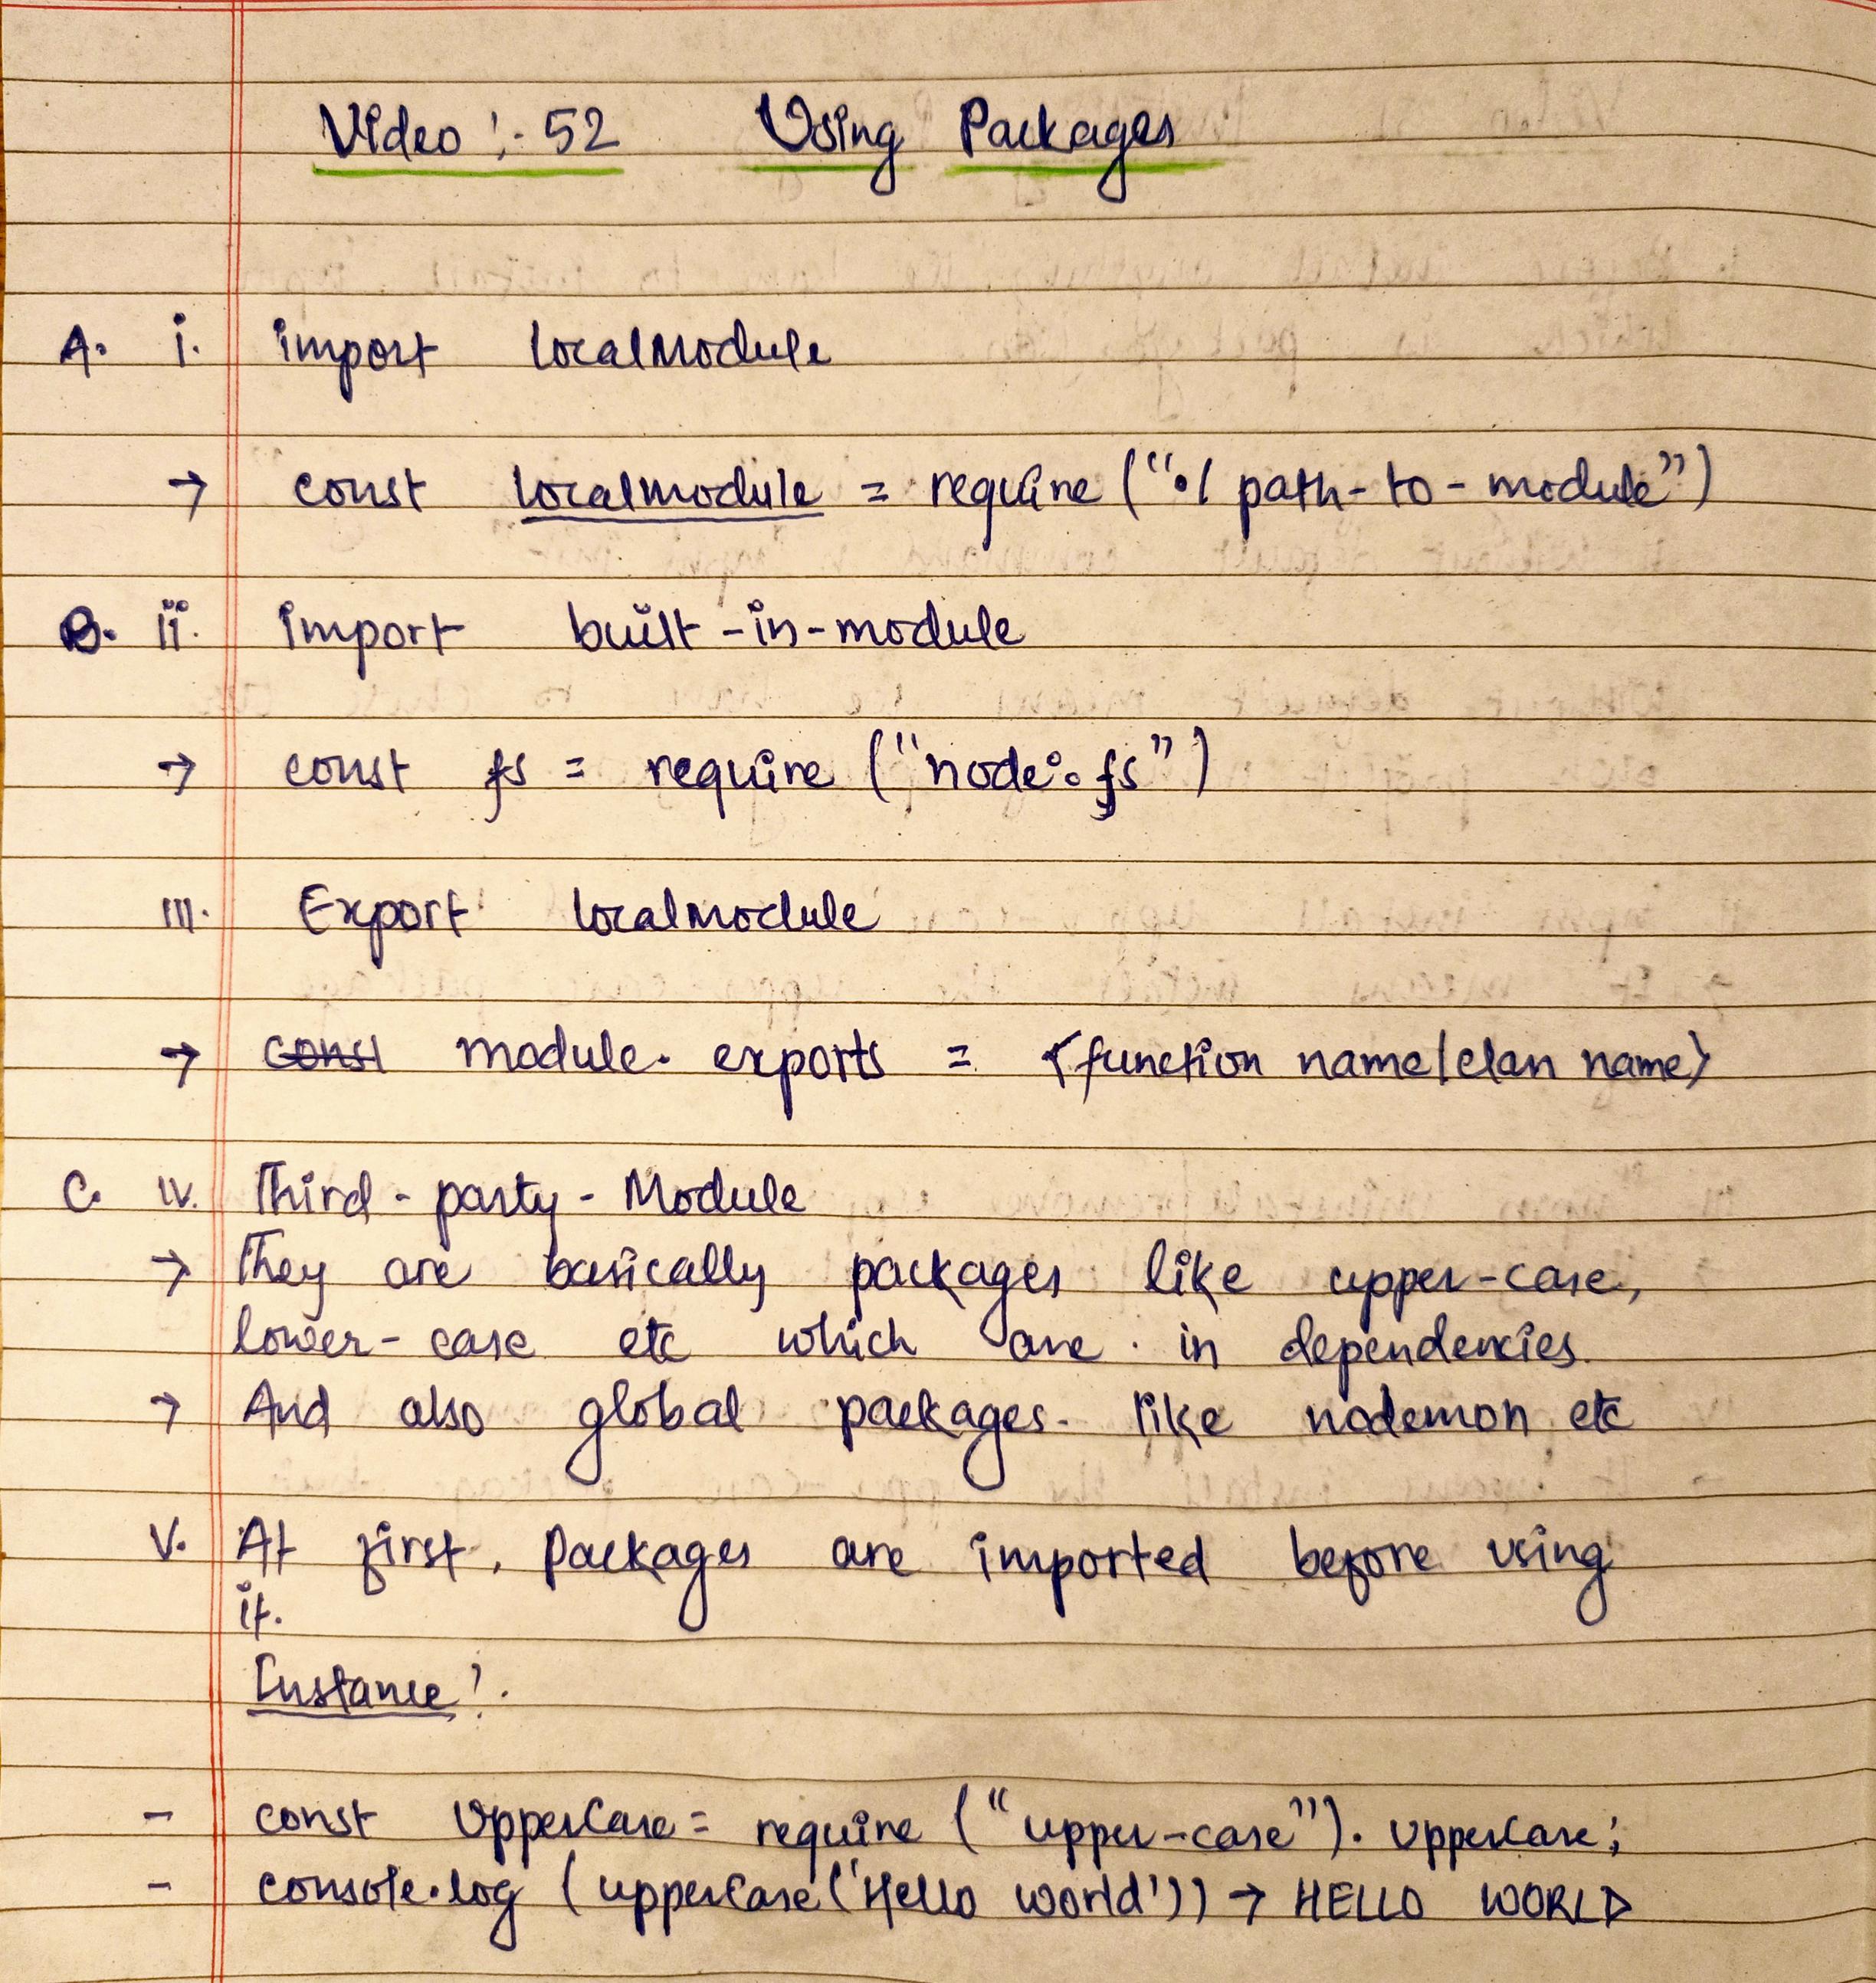 Video :- 52 Using Packages
A. i. import localModule
→ const localmodule = require ("./ path-to-module")
B. ii. import built-in-module
→ const fs = require ("node:fs")
iii. Export localmodule
→ const module. exports = {function name/class name}
C. iv. Third-party-Module
→ They are basically packages like upper-case,
lower-case etc which are in dependencies.
→ And also global packages. like nodemon etc
v. At first, packages are imported before using
it.
Instance :-
- const UpperCase = require ("upper-case"). upperCase;
- console.log (upperCase('Hello world')) → HELLO WORLD